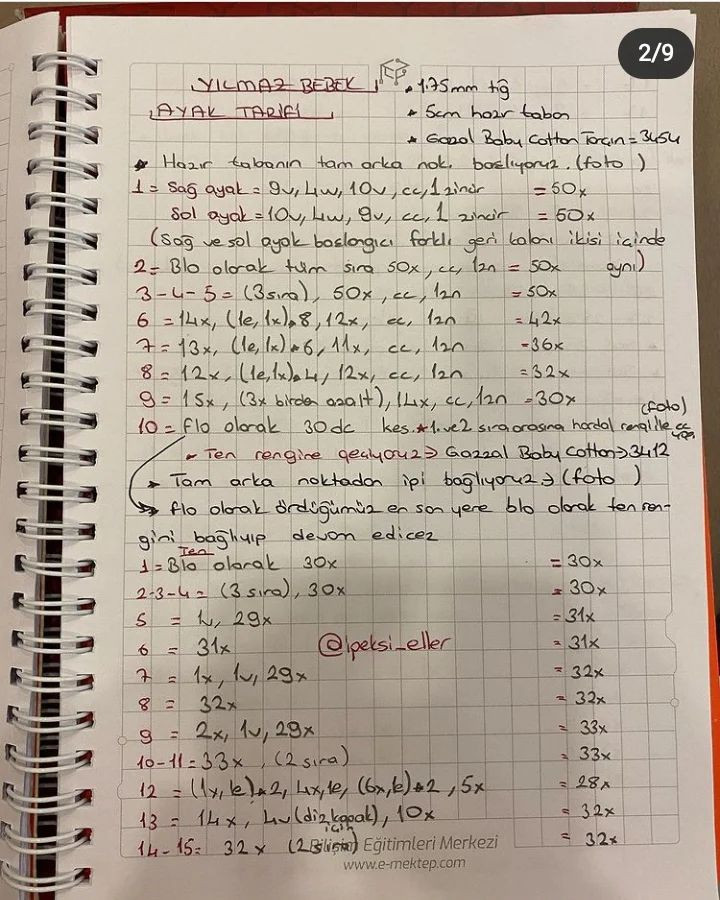 2/9
YILMAZ BEBEK
AYAK TARİFİ
• 1.75mm tığ
* 5cm hazır taban
* Gazal Baby Cotton Tarçın = 3454
* Hazır tabanın tam arka nok. başlıyoruz. (foto )
1 = Sağ ayak = 9v, 4w, 10v, cc, 1 zincir = 50x
Sol ayak = 10v, 4w, 9v, cc, 1 zincir = 50x
(Sağ ve sol ayak başlangıcı farklı geri kalanı ikisi içinde aynı)
2 = Blo olarak tüm sıra 50x, cc, 1zn = 50x
3-4-5 = (3 sıra), 50x, cc, 1zn = 50x
6 = 14x, (1e, 1x)*8, 12x, cc, 1zn = 42x
7 = 13x, (1e, 1x)*6, 11x, cc, 1zn = 36x
8 = 12x, (1e, 1x)*4, 12x, cc, 1zn = 32x
9 = 15x, (3x birden azalt), 14x, cc, 1zn = 30x
10 = flo olarak 30dc kes. * 1. ve 2 sıra arasına hardal rengi ile cc (foto)
* Ten rengine geçiyoruz → Gazzal Baby Cotton → 3412
* Tam arka noktadan ipi bağlıyoruz → (foto )
* flo olarak ördüğümüz en son yere blo olarak ten ren-
gini bağlayıp devam edicez
Ten
1 = Blo olarak 30x = 30x
2-3-4 = (3 sıra), 30x = 30x
5 = 1v, 29x = 31x
6 = 31x = 31x
@ipeksi_eller
7 = 1x, 1v, 29x = 32x
8 = 32x = 32x
9 = 2x, 1v, 29x = 33x
10-11 = 33x, (2 sıra) = 33x
12 = (1x, 1e)*2, 4x, 1e, (6x, 1e)*2, 5x = 28x
13 = 14x, 4v (diz kapak için), 10x = 32x
14-15 = 32x (2 sıra) = 32x
Bilişim Eğitimleri Merkezi
www.e-mektep.com